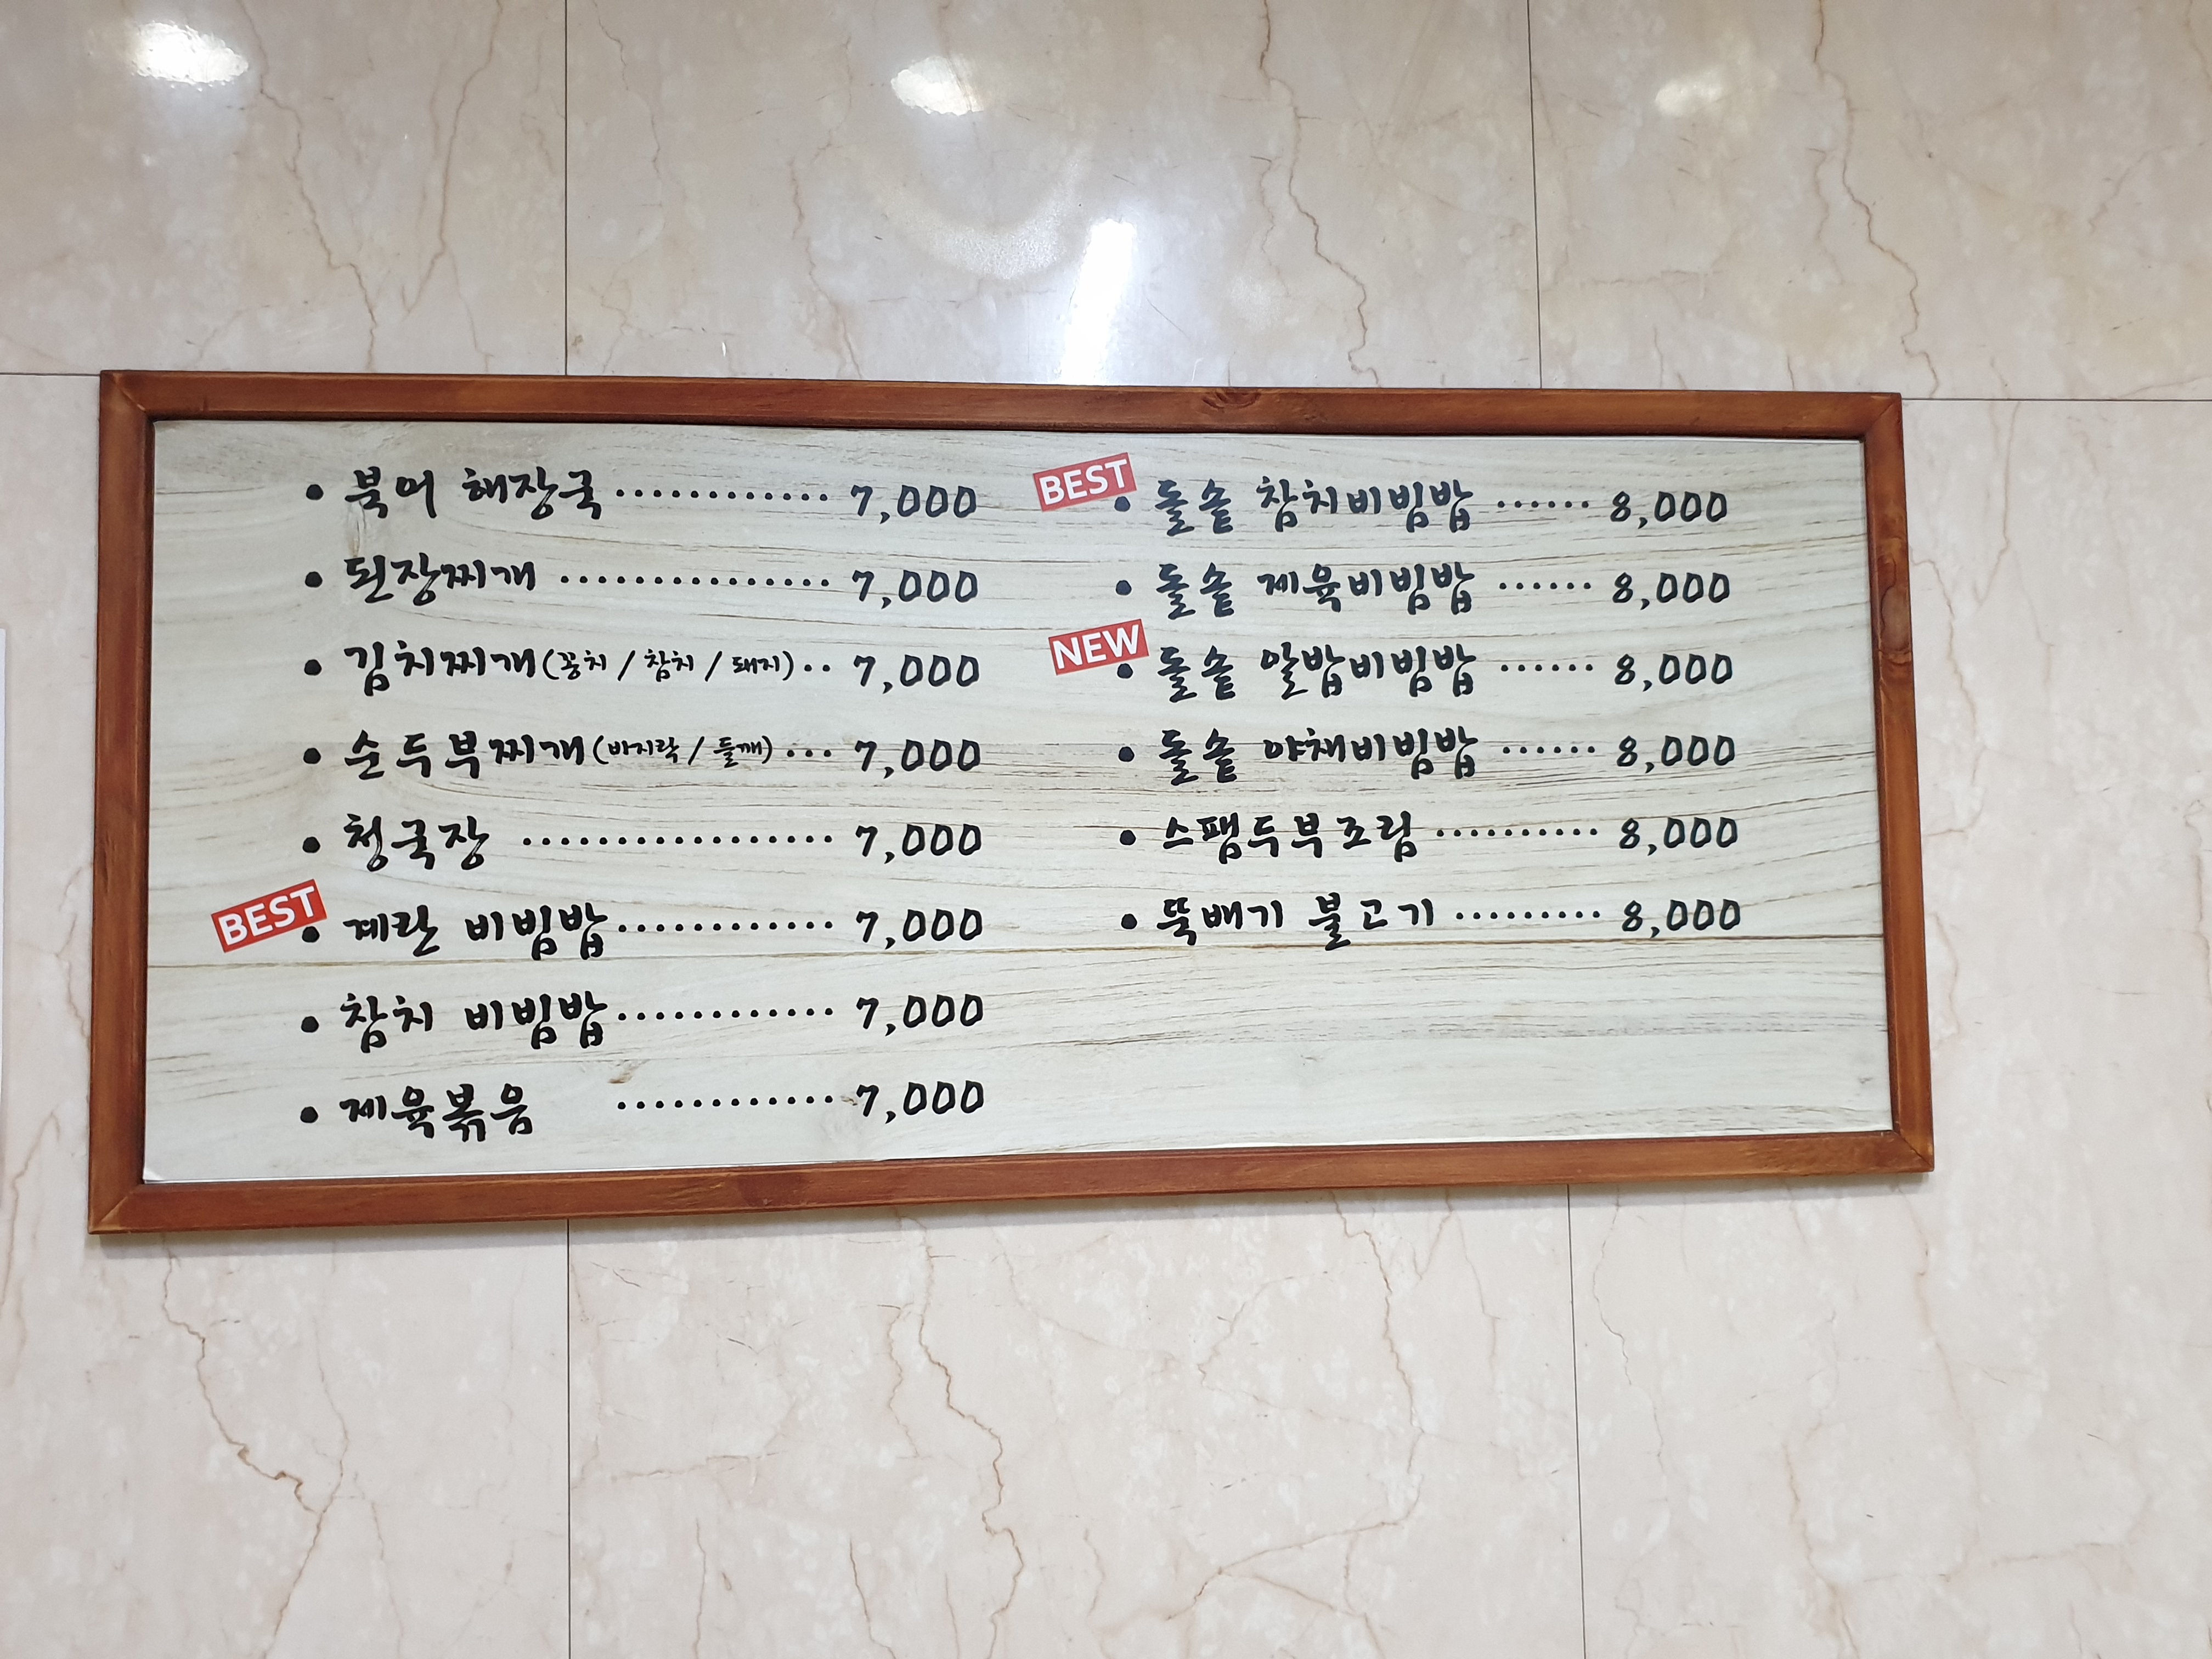 • 북어 해장국 ············ 7,000
• 된장찌개 ··············· 7,000
• 김치찌개(꽁치 / 참치 / 돼지) ·· 7,000
• 순두부찌개(바지락 / 들깨) ··· 7,000
• 청국장 ················· 7,000
BEST
• 계란 비빔밥············ 7,000
• 참치 비빔밥············ 7,000
• 제육볶음 ············ 7,000
BEST
• 돌솥 참치비빔밥 ······ 8,000
• 돌솥 제육비빔밥 ······ 8,000
NEW
• 돌솥 알밥비빔밥 ······ 8,000
• 돌솥 야채비빔밥 ······ 8,000
• 스팸두부조림 ·········· 8,000
• 뚝배기 불고기 ········· 8,000